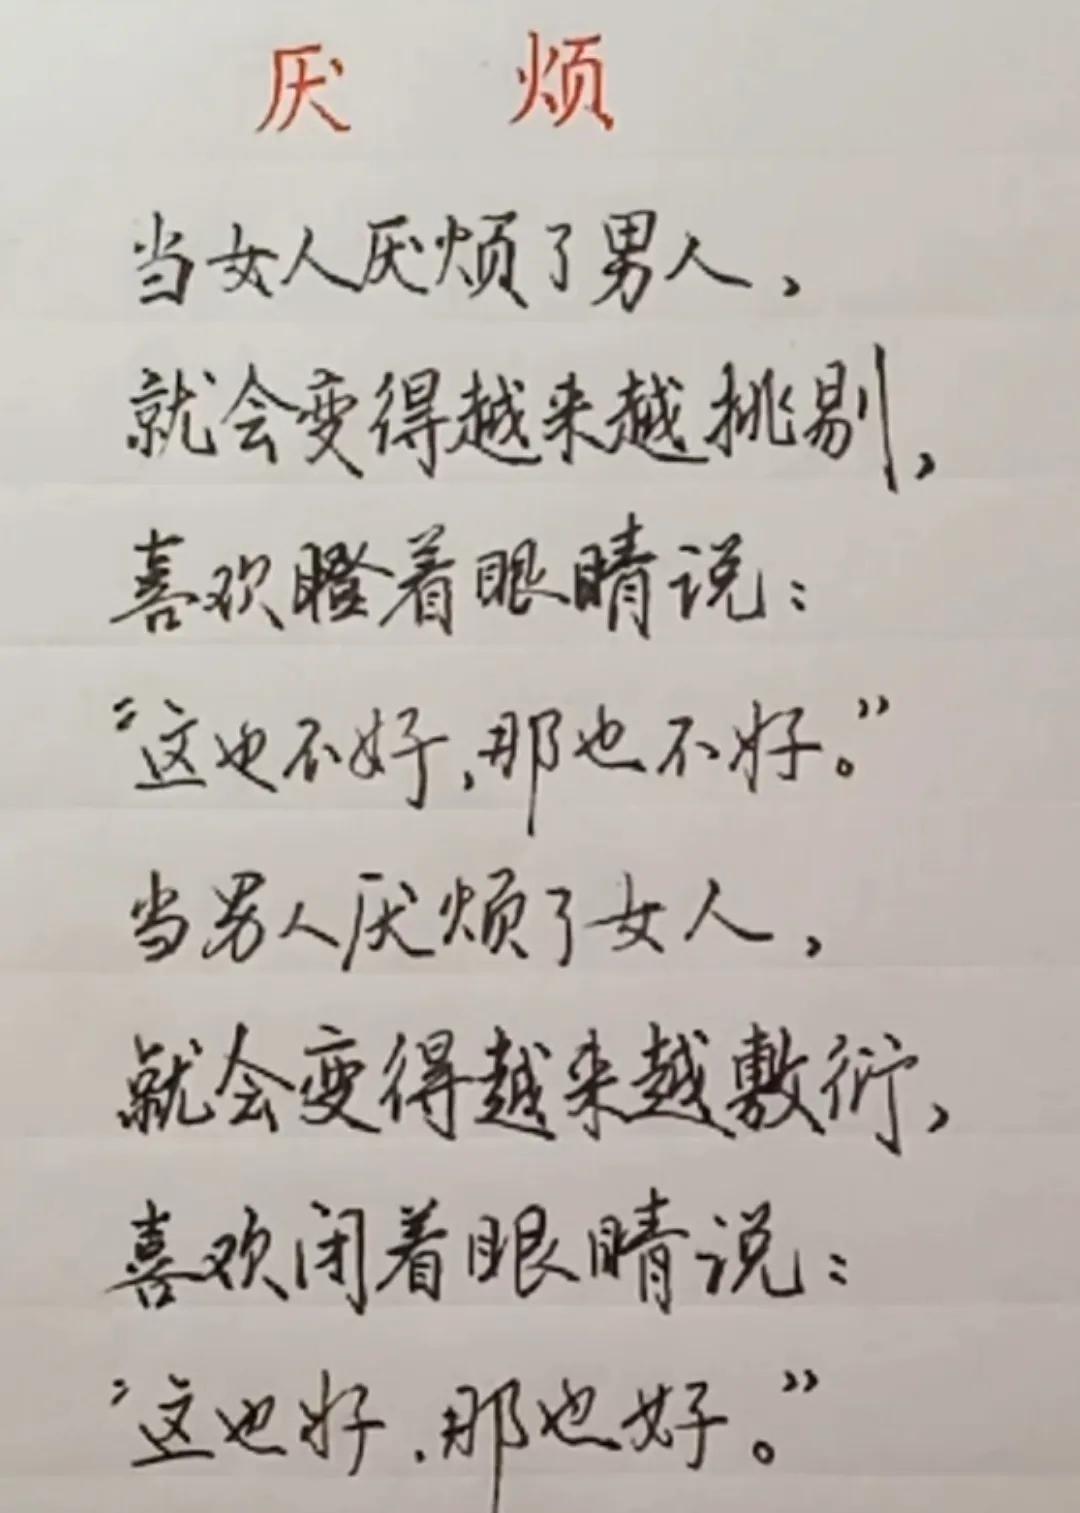 厌烦
当女人厌烦了男人，
就会变得越来越挑剔，
喜欢瞪着眼睛说：
“这也不好，那也不好。”
当男人厌烦了女人，
就会变得越来越敷衍，
喜欢闭着眼睛说：
“这也好，那也好。”